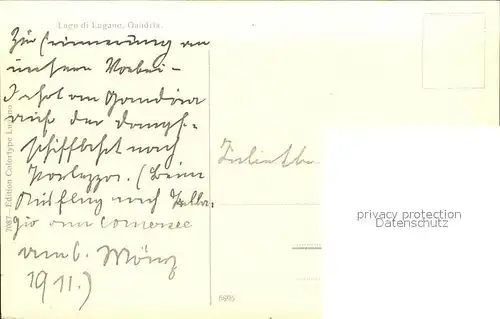 Lago di Lugano, Gandria.
Zur Erinnerung an
unsern Vorbei-
an Gandria
auf der Dampf-
schiffahrt nach
Porlezza. (Beim
Ausflug nach Bella-
gio am Comersee
am 6. März
1911.)
7087 - Edition Colortype Lugano
privacy protection
VARIMEDIA.COM